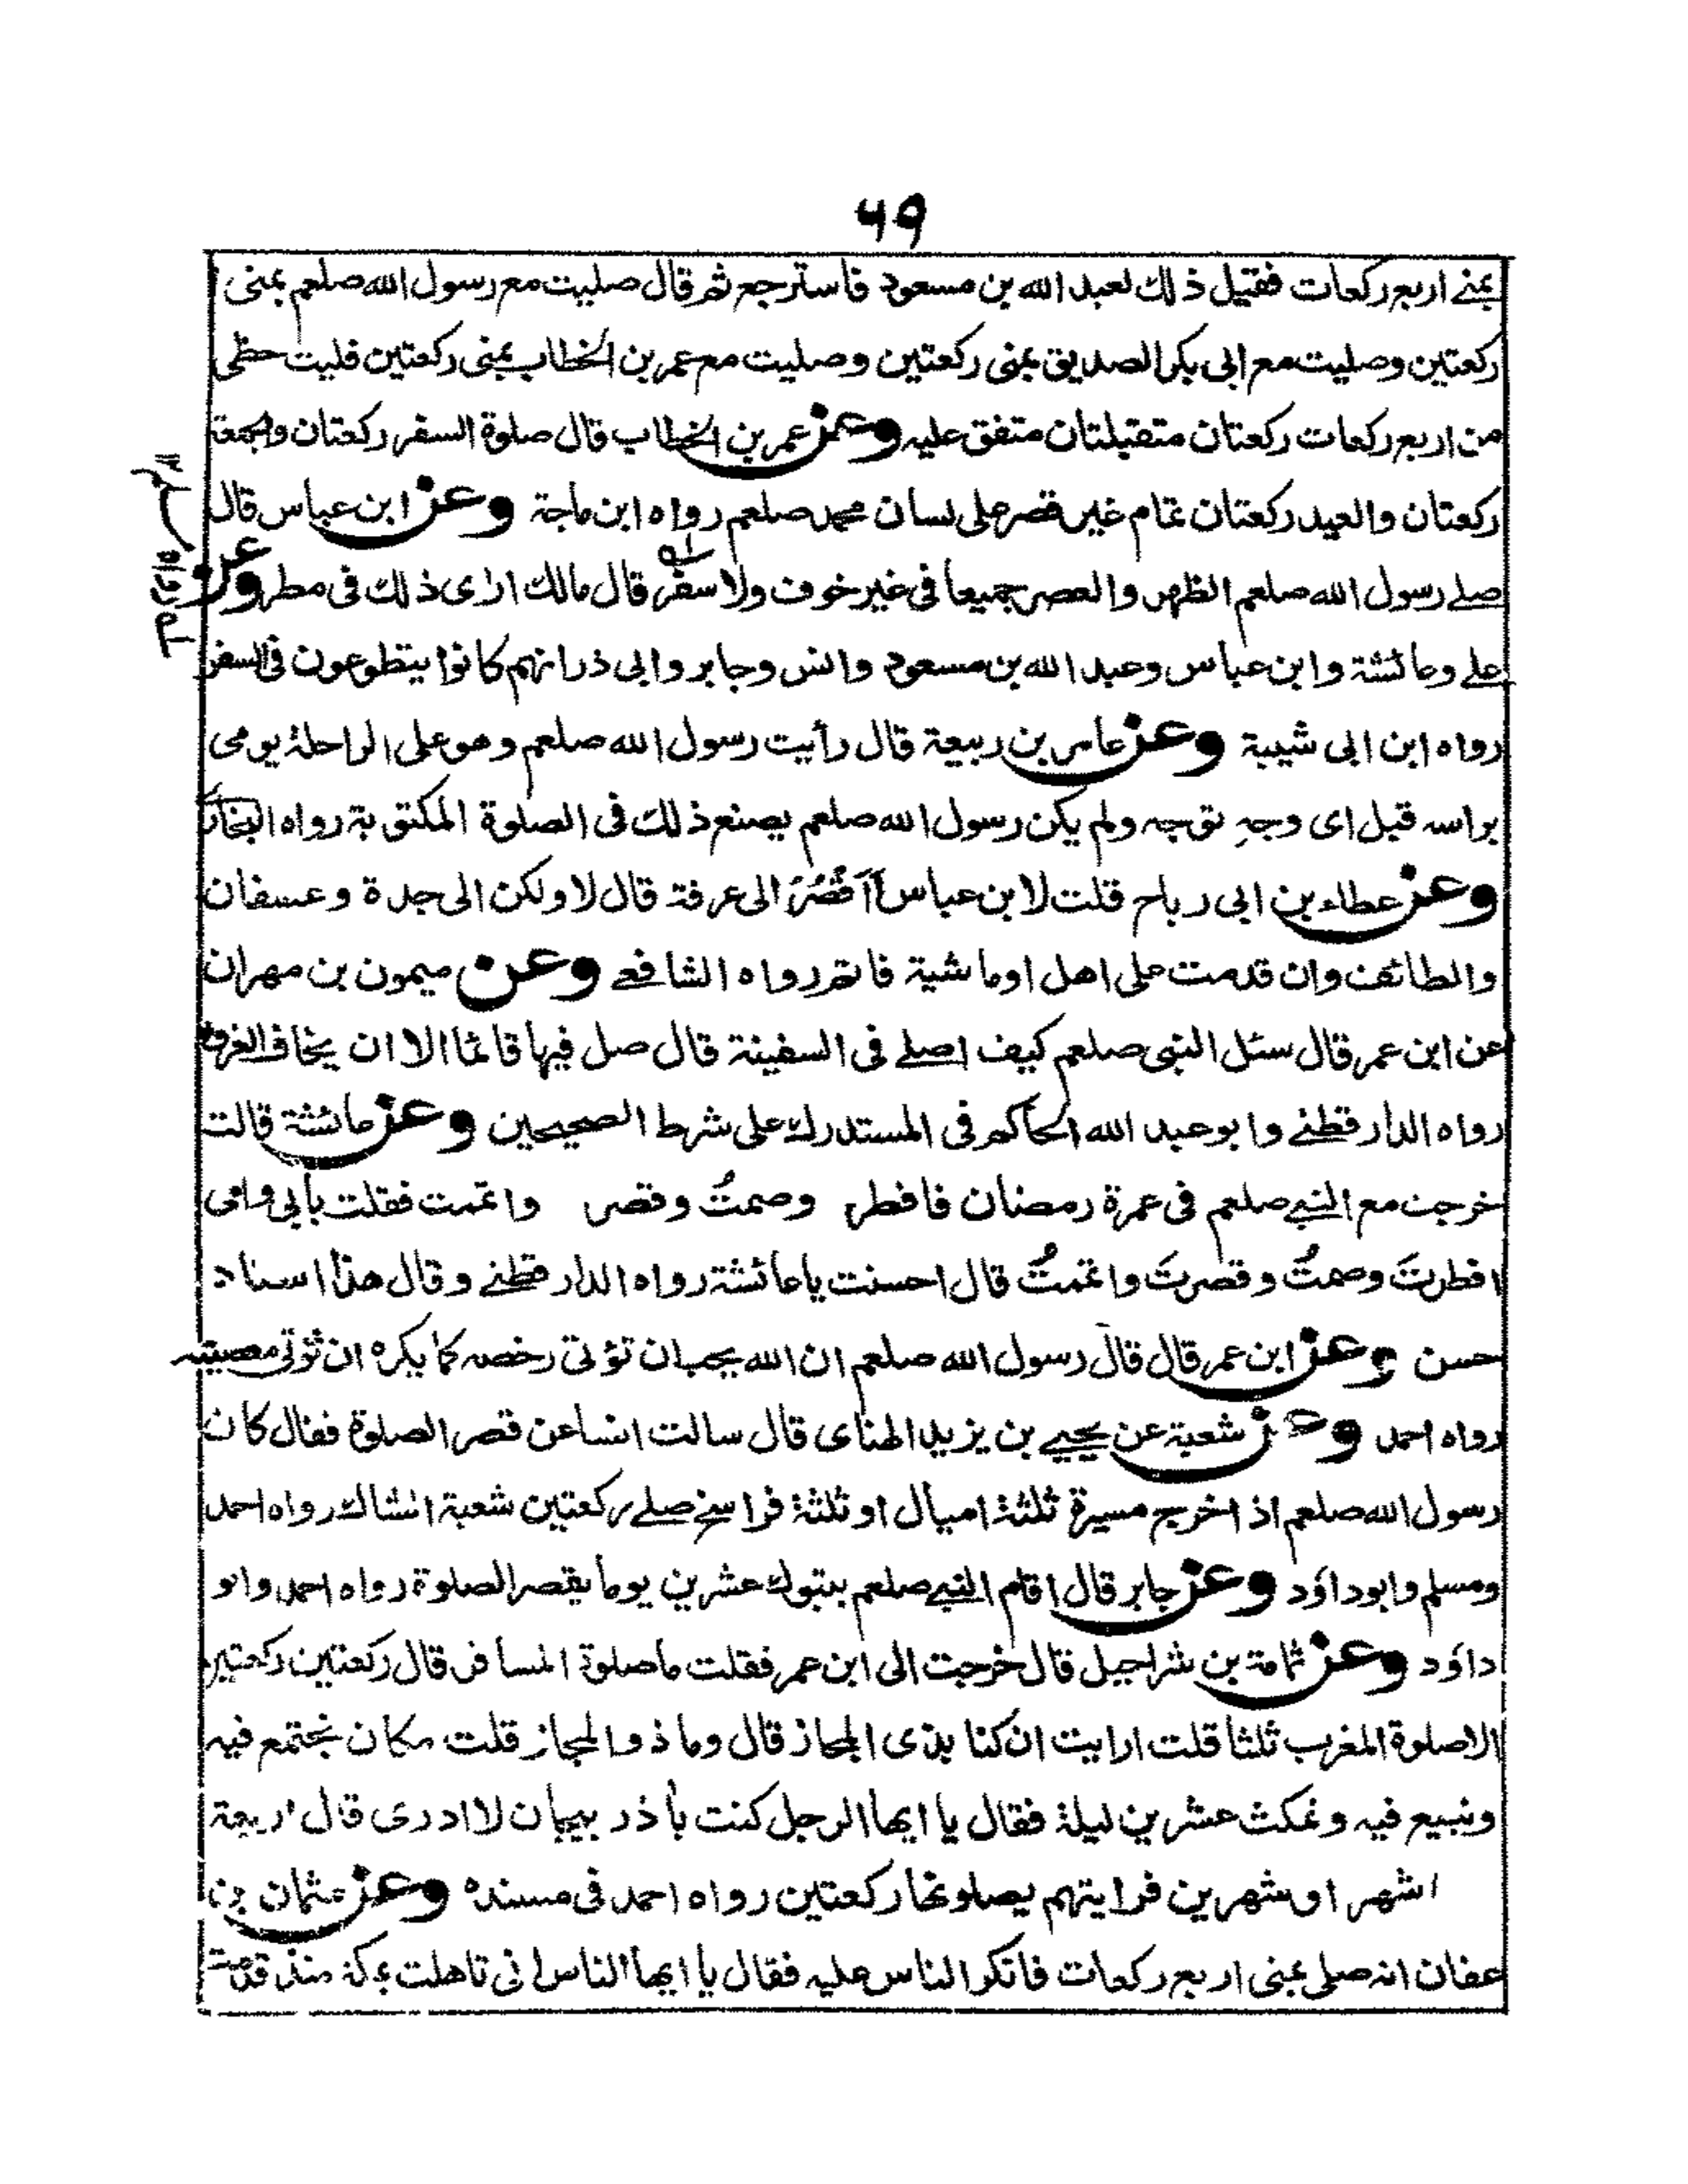 ۶۹
بمنے اربع ركعات فقيل ذلك لعبد الله بن مسعود فاسترجع ثم قال صليت مع رسول الله صلعم بمنى
ركعتين وصليت مع ابى بكر الصديق بمنى ركعتين وصليت مع عمر بن الخطاب بمنى ركعتين فليت حظى
من اربع ركعات ركعتان متقبلتان متفق عليه وعن عمر بن الخطاب قال صلوة السفر ركعتان والجمعة
ركعتان والعيد ركعتان تمام غير قصر على لسان محمد صلعم رواه ابن ماجة وعن ابن عباس قال
صلے رسول الله صلعم الظهر والعصر جميعا فى غير خوف ولا سفر قال مالك ارى ذلك فى مطر وعن
علے وعائشة وابن عباس وعبد الله بن مسعود وانس وجابر وابى ذر انهم كانوا يتطوعون فى السفر
رواه ابن ابى شيبة وعن عامر بن ربيعة قال رأيت رسول الله صلعم وهو على الراحلة يومى
براسه قبل اى وجهِ توجه ولم يكن رسول الله صلعم يصنع ذلك فى الصلوة المكتوبة رواه البخارى
وعن عطاء بن ابى رباح قلت لابن عباس أاَقْصُرُ الى عرفة قال لا ولكن الى جدة وعسفان
والطائف وان قدمت على اهل او ماشية فاتم رواه الشافعے وعن ميمون بن مهران
عن ابن عمر قال سئل النبى صلعم كيف اصلے فى السفينة قال صل فيها قائما الا ان يخاف الغرق
رواه الدارقطنے وابو عبد الله الحاكم فى المستدرك على شرط الصحيحين وعن عائشة قالت
خرجت مع النبے صلعم فى عمرة رمضان فافطر وصمتُ وقصر واتممت فقلت بأبى وامى
افطرتَ وصمتُ وقصرتَ واتممتُ قال احسنت يا عائشة رواه الدارقطنے وقال هذا اسناد
حسن وعن ابن عمر قال قال رسول الله صلعم ان الله يحب ان تؤتى رخصه كما يكره ان تؤتى معصيته
رواه احمد وعن شعبة عن يحيے بن يزيد الهناى قال سالت انسا عن قصر الصلوة فقال كان
رسول الله صلعم اذا خرج مسيرة ثلثة اميال او ثلثة فراسخ صلے ركعتين شعبة الشاك رواه احمد
ومسلم وابو داؤد وعن جابر قال اقام النبے صلعم بتبوك عشرين يوما يقصر الصلوة رواه احمد وابو
داؤد وعن ثمامة بن شراحيل قال خرجت الى ابن عمر فقلت ما صلوة المسافر قال ركعتين ركعتين
الا صلوة المغرب ثلثا قلت ارايت ان كنا بذى المجاز قال وما ذو المجاز قلت مكان نجتمع فيه
ونبيع فيه ونمكث عشرين ليلة فقال يا ايها الرجل كنت بأذر بيجان لا ادرى قال اربعة
اشهر او شهرين فرايتهم يصلونها ركعتين رواه احمد فى مسنده وعن عثمان بن
عفان انه صلى بمنى اربع ركعات فانكر الناس عليه فقال يا ايها الناس انى تاهلت بمكة منذ قدمت